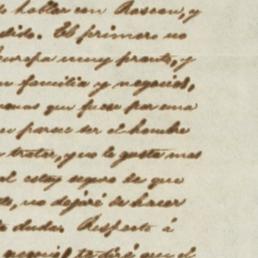 hablar con Roscon, y
El primero no
Europa muy pronto, y
familia y negocios,
que fuese por una
parece ser el hombre
tratar, y no le gusta mas
estoy seguro de que
no dejará de hacer
duda. Respecto á